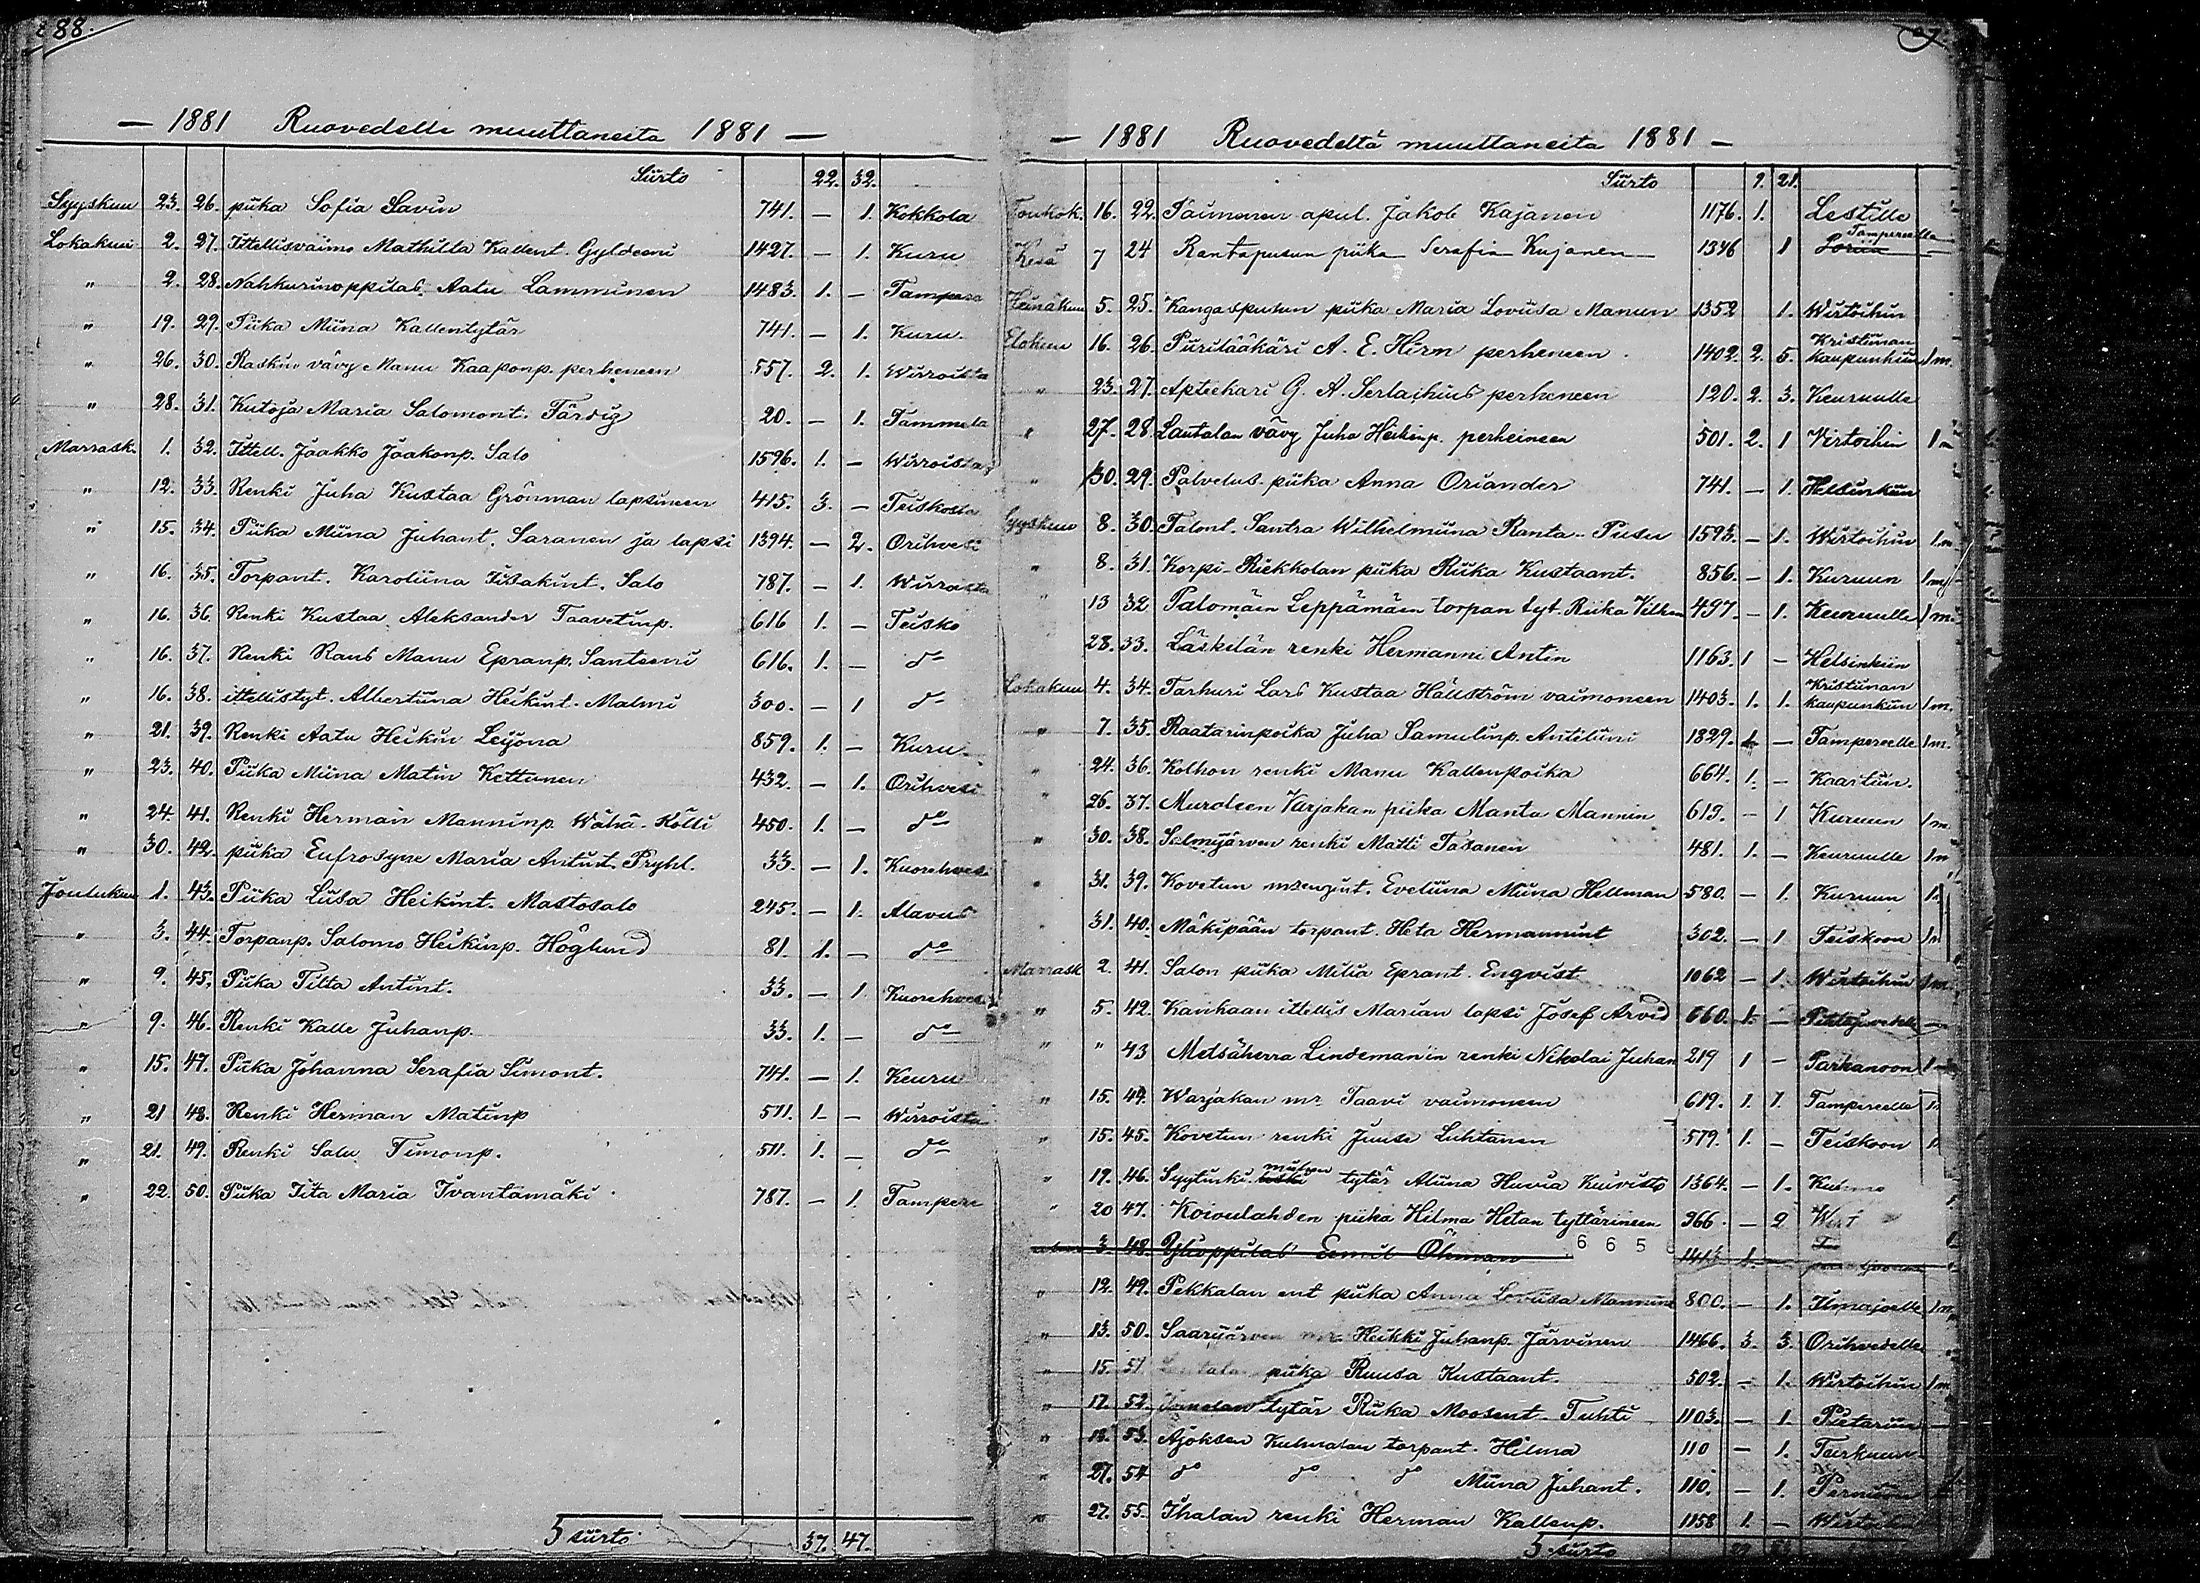 88.
— 1881 Ruovedelle muuttaneita 1881 —
Siirto 22. 32.
Syyskuu 23. 26. piika Sofia Savin 741. — 1. Kokkola
Lokakuu 2. 27. Ittellisvaimo Mathilta Kallent. Gyldeeni 1427. — 1. Kuru
" 2. 28. Nahkurinoppilas Aatu Lamminen 1483. 1. — Tampere
" 19. 29. Piika Miina Kallentytär 741. — 1. Kuru.
" 26. 30. Raskin vävy Manu Kaaponp. perheneen 557. 2. 1. Wirroista
" 28. 31. Kutoja Maria Salomont. Färdig 20. — 1. Tammela
Marrask. 1. 32. Ittell. Jaakko Jaakonp. Salo 1596. 1. — Wirroista
" 12. 33. Renki Juha Kustaa Grönman lapsineen 415. 3. — Teiskosta
" 15. 34. Piika Miina Juhant. Saranen ja lapsi 1394. — 2. Orihvesi
" 16. 35. Torpant. Karoliina Iisakint. Salo 787. — 1. Wirroista
" 16. 36. Renki Kustaa Aleksander Taavetinp. 616 1. — Teisko
" 16. 37. Renki Rans Manu Epranp. Santeeni 616. 1. — do
" 16. 38. ittellistyt. Albertiina Heikint. Malmi 300. — 1 do
" 21. 39. Renki Aatu Heikin Leijona 859. 1. — Kuru
" 23. 40. Piika Miina Matin Kettunen 432. — 1. Orihvesi
" 24. 41. Renki Herman Manninp. Wähä-Kölli 450. 1. — do
" 30. 42. piika Eufrosyne Maria Antint. Pryhl. 33. — 1. Kuorehvesi
Joulukuu 1. 43. Piika Liisa Heikint. Mastosalo 245. — 1. Alavus
" 3. 44. Torpanp. Salomo Heikinp. Höglund 81. 1. — do
" 9. 45. Piika Tilta Antint. 33. — 1 Kuorehves.
" 9. 46. Renki Kalle Juhanp. 33. 1. — do
" 15. 47. Piika Johanna Serafia Simont. 741. — 1. Keuru
" 21 48. Renki Herman Matinp 511. 1. — Wirroista
" 21. 49. Renki Salu Timonp. 511. 1. — do
" 22. 50. Piika Iita Maria Ivantamäki 787. — 1. Tampere
siirto 37. 47.
— 1881 Ruovedeltä muuttaneita 1881 —
Siirto 9. 21.
Toukok. 16. 22. Paimenen apul. Jakob Kajanen 1176. 1. Lestille
Kesä 7 24 Rantapusun piika Serafia Kujanen 1346 1 Tampereelle
Heinäkuu 5. 25. Kangaspusun piika Maria Loviisa Manun 1352 1. Wirtoihin
Elokuu 16. 26. Piirilääkäri A. E. Hirm perheneen 1402. 2. 5. Kristiinan kaupunkiin 1 m.
" 23. 27. Aptiekari G. A. Serlachius perheneen 120. 2. 3. Keuruulle
" 27. 28. Lautalan vävy Juha Heikinp. perheineen 501. 2. 1 Virtoihin 1 m
" 30. 29. Palvelus-piika Anna Oriander 741. — 1. Helsinkiin
Syyskuu 8. 30. Talont. Santra Wilhelmiina Ranta-Pusu 1593. — 1. Wirtoihin 1.m
" 8. 31. Korpi-Riekkolan piika Riika Kustaant. 856. — 1. Kuruun 1 m
" 13 32 Palomäen Leppämäen torpan tyt. Riika Vilhen 497. — 1. Keuruulle 1 m.
28. 33. Läskelän renki Hermanni Antin 1163. 1 — Helsinkiin
Lokakuu 4. 34. Tarhuri Lars Kustaa Hällström vaimoneen 1403. 1. 1. Kristiinan kaupunkiin 1 m.
" 7. 35. Raatarinpoika Juha Samulinp. Anteliini 1829. 1. — Tampereelle 1 m.
" 24. 36. Kolhon renki Manu Kallenpoika 664. 1. — Kaartiin.
" 26. 37. Muroleen Varjakan piika Manta Mannin 619. — 1 Kuruun 1 m.
" 30. 38. Salmijärven renki Matti Tasanen 481. 1. — Keuruulle 1 m
" 31. 39. Kovetun mrengint. Eveliina Miina Hellman 580. — 1. Kuruun 1.
31. 40. Mäkipään torpant. Heta Hermannint 302. — 1 Teiskoon 1 m
Marrask 2. 41. Salon piika Milia Eprant. Engvist 1062 — 1. Wirtoihin 1 m
" 5. 42. Kankaan ittellis Marian lapsi Josef Arvid 660. 1. — Pihlajavedelle —
" " 43 Metsäherra Lindeman'in renki Nikolai Juhan 219 1 — Parkanoon 1
" 15. 44. Warjakan mr. Taavi vaimoneen 619. 1. 1. Tampereelle 1.
" 15. 45. Kovetun renki Juuse Luhtanen 579. 1. — Teiskoon 1
" 19. 46. Syytinki muton tytär Aliina Huvia Kuivisto 1364. — 1.
" 20 47. Koivulahden piika Hilma Hetan tyttärineen 366. — 2
6 6 5
3. 48. Ylioppilas Eemil Öhman 1413 1.
" 12. 49. Pekkalan ent piika Anna Loviisa Mannint 800. — 1. Ilmajoelle 1 m.
" 13. 50. Saarijärven mr. Heikki Juhanp. Järvinen 1466. 3. 3. Orihvedelle
" 15. 51 piika Ruusa Kustaant. 502. — 1. Wirtoihin 1 m
" 17. 52. tytär Riika Moosent. Tuhti 1103. — 1. Pietariin —
" 18. 53. Ajoksen Kulmalan torpant. Hilma 110 — 1. Turkuun
" 27. 54 do do do Miina Juhant. 110. — 1.
" 27. 55. Ihalan renki Herman Kallenp. 1158 1. — Wirtoihin
siirto